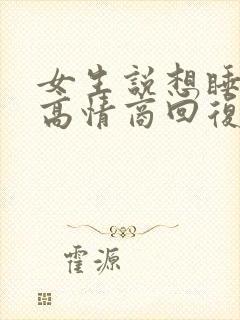 女生說想睡
高情商回復
霍源